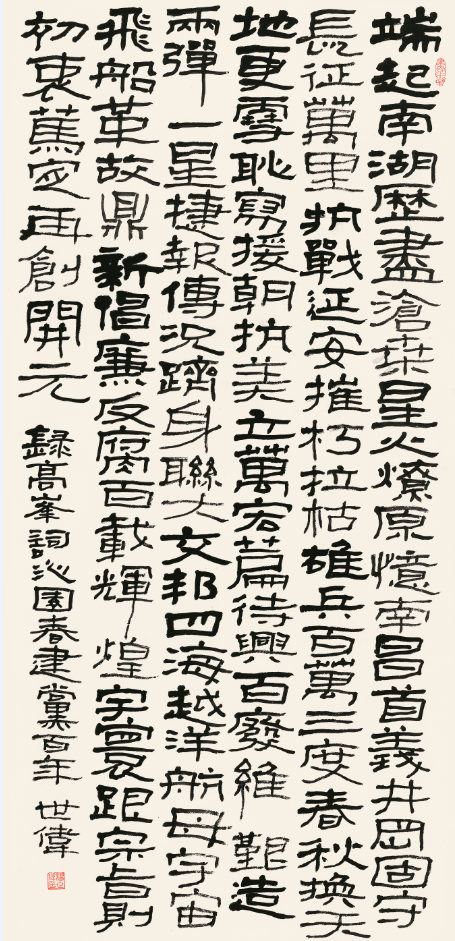 端起南湖歷盡滄桑星火燎原憶南昌首義井岡固守
長征萬里抗戰延安摧朽拉枯雄兵百萬三度春秋換天
地更雪恥寫援朝抗美立萬宏篇待興百廢維艱造
兩彈一星捷報傳況躋身聯大交邦四海越洋航母宇宙
飛船革故鼎新倡廉反腐百載輝煌宇寰跟宗旨則
初衷篤定再創開元 錄高峯詞沁園春建黨百年 世偉